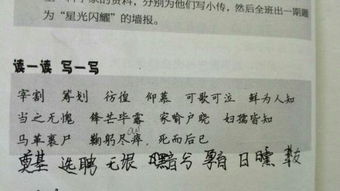 科学家的资料，分别为他们写小传，然后全班出一期题
为“星光闪耀”的墙报。
读一读 写一写
宰割 筹划 彷徨 仰慕 可歌可泣 鲜为人知
当之无愧 锋芒毕露 家喻户晓 妇孺皆知
马革裹尸 鞠躬尽瘁，死而后已
cuì
奠基 选聘 无垠 昼 日